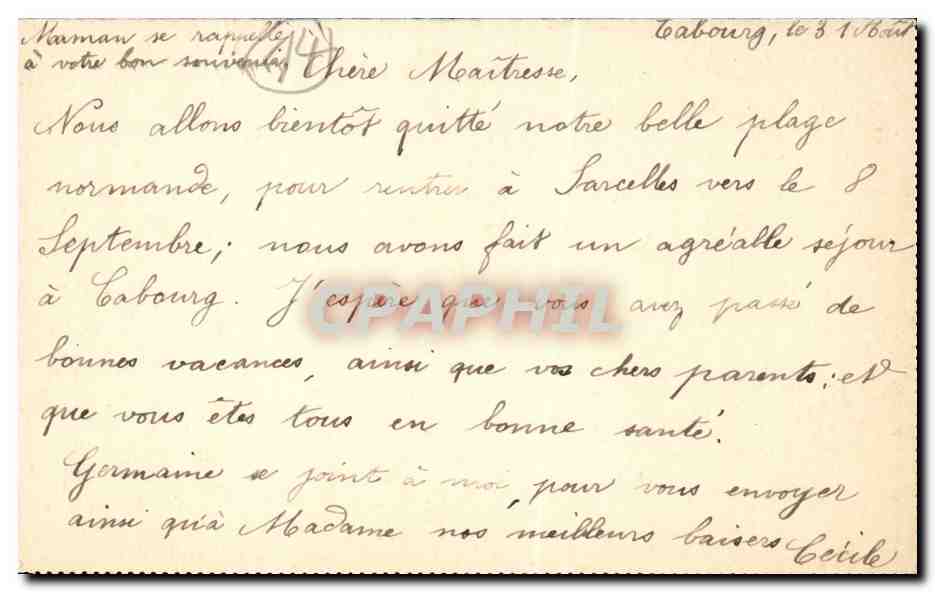 Cabourg, le 31 Août
Maman se rappelle
à votre bon souvenir.
(14)
Chère Maîtresse,
Nous allons bientôt quitté notre belle plage
normande, pour rentrer à Sarcelles vers le 8
Septembre; nous avons fait un agréable séjour
à Cabourg. J'espère que vous avez passé de
bonnes vacances, ainsi que vos chers parents; et
que vous êtes tous en bonne santé.
Germaine se joint à moi, pour vous envoyer
ainsi qu'à Madame nos meilleurs baisers
Cécile
CPAPHIL